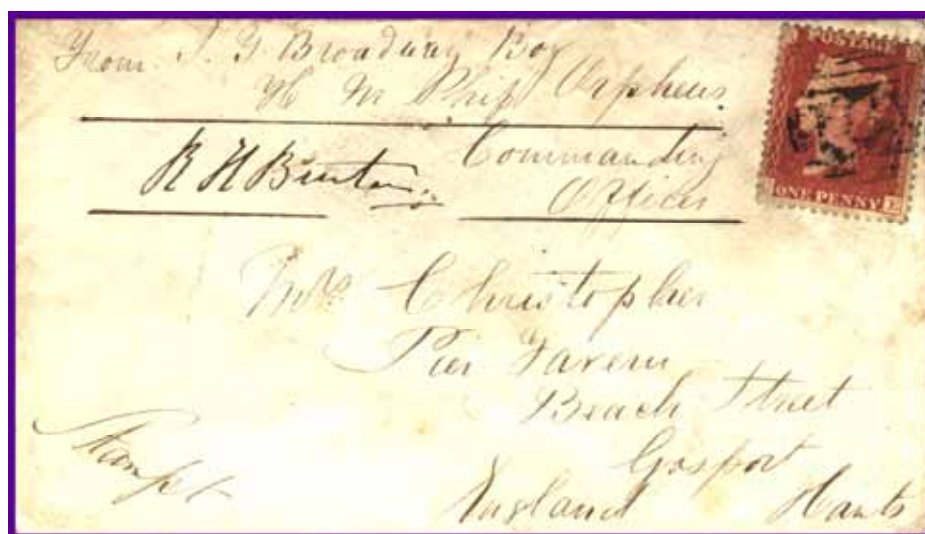 From J. G Broadway Boy
H M Ship Orpheus.
R H Burton
Commanding
Officer
POSTAGE
ONE PENNY
E
Mrs Christopher
Pier Tavern
Beach Street
Gosport
England Hants
Stampt